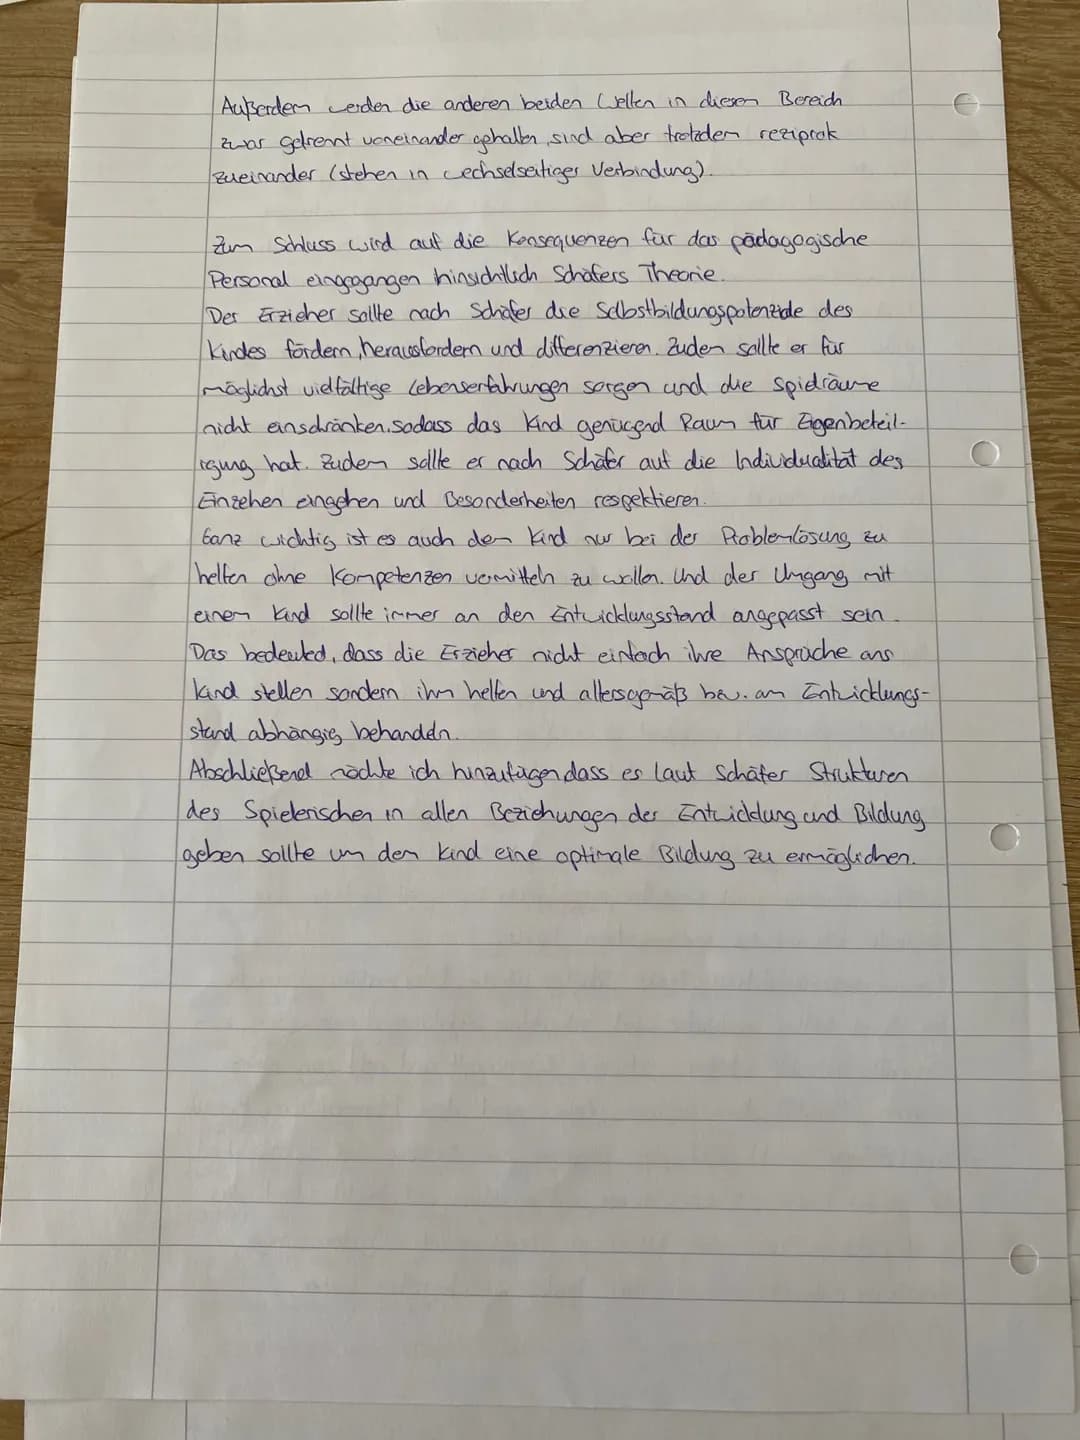 Außerdem werden die anderen beiden Welten in diesem Bereich
zwar getrennt voneinander gehalten, sind aber trotzdem reziprok
zueinander (stehen in wechselseitiger Verbindung).
Zum Schluss wird auf die Konsequenzen für das pädagogische
Personal eingegangen hinsichtlich Schäfers Theorie.
Der Erzieher sollte nach Schäfer die Selbstbildungspotenziale des
Kindes fördern, herausfordern und differenzieren. Zudem sollte er für
möglichst vielfältige Lebenserfahrungen sorgen und die Spielräume
nicht einschränken, sodass das Kind genügend Raum für Eigenbeteil-
igung hat. Zudem sollte er nach Schäfer auf die Individualität des
Einzelnen eingehen und Besonderheiten respektieren.
Ganz wichtig ist es auch dem Kind nur bei der Problemlösung zu
helfen ohne Kompetenzen vermitteln zu wollen. Und der Umgang mit
einem Kind sollte immer an den Entwicklungsstand angepasst sein.
Das bedeuted, dass die Erzieher nicht einfach ihre Ansprüche ans
Kind stellen sondern ihm helfen und altersgemäß bzw. am Entwicklungs-
stand abhängig behandeln.
Abschließend möchte ich hinzufügen dass es laut Schäfer Strukturen
des Spielerischen in allen Beziehungen der Entwicklung und Bildung
geben sollte um dem Kind eine optimale Bildung zu ermöglichen.